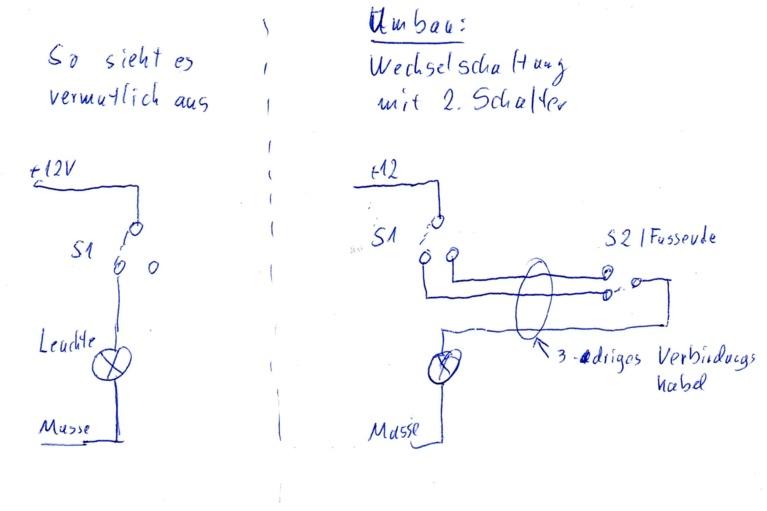 So sieht es
vermutlich aus
+12V
S1
Leuchte
Masse
Umbau:
Wechselschaltung
mit 2. Schalter
+12
S1
S2 / Fussende
3-adriges Verbindungs
kabel
Masse